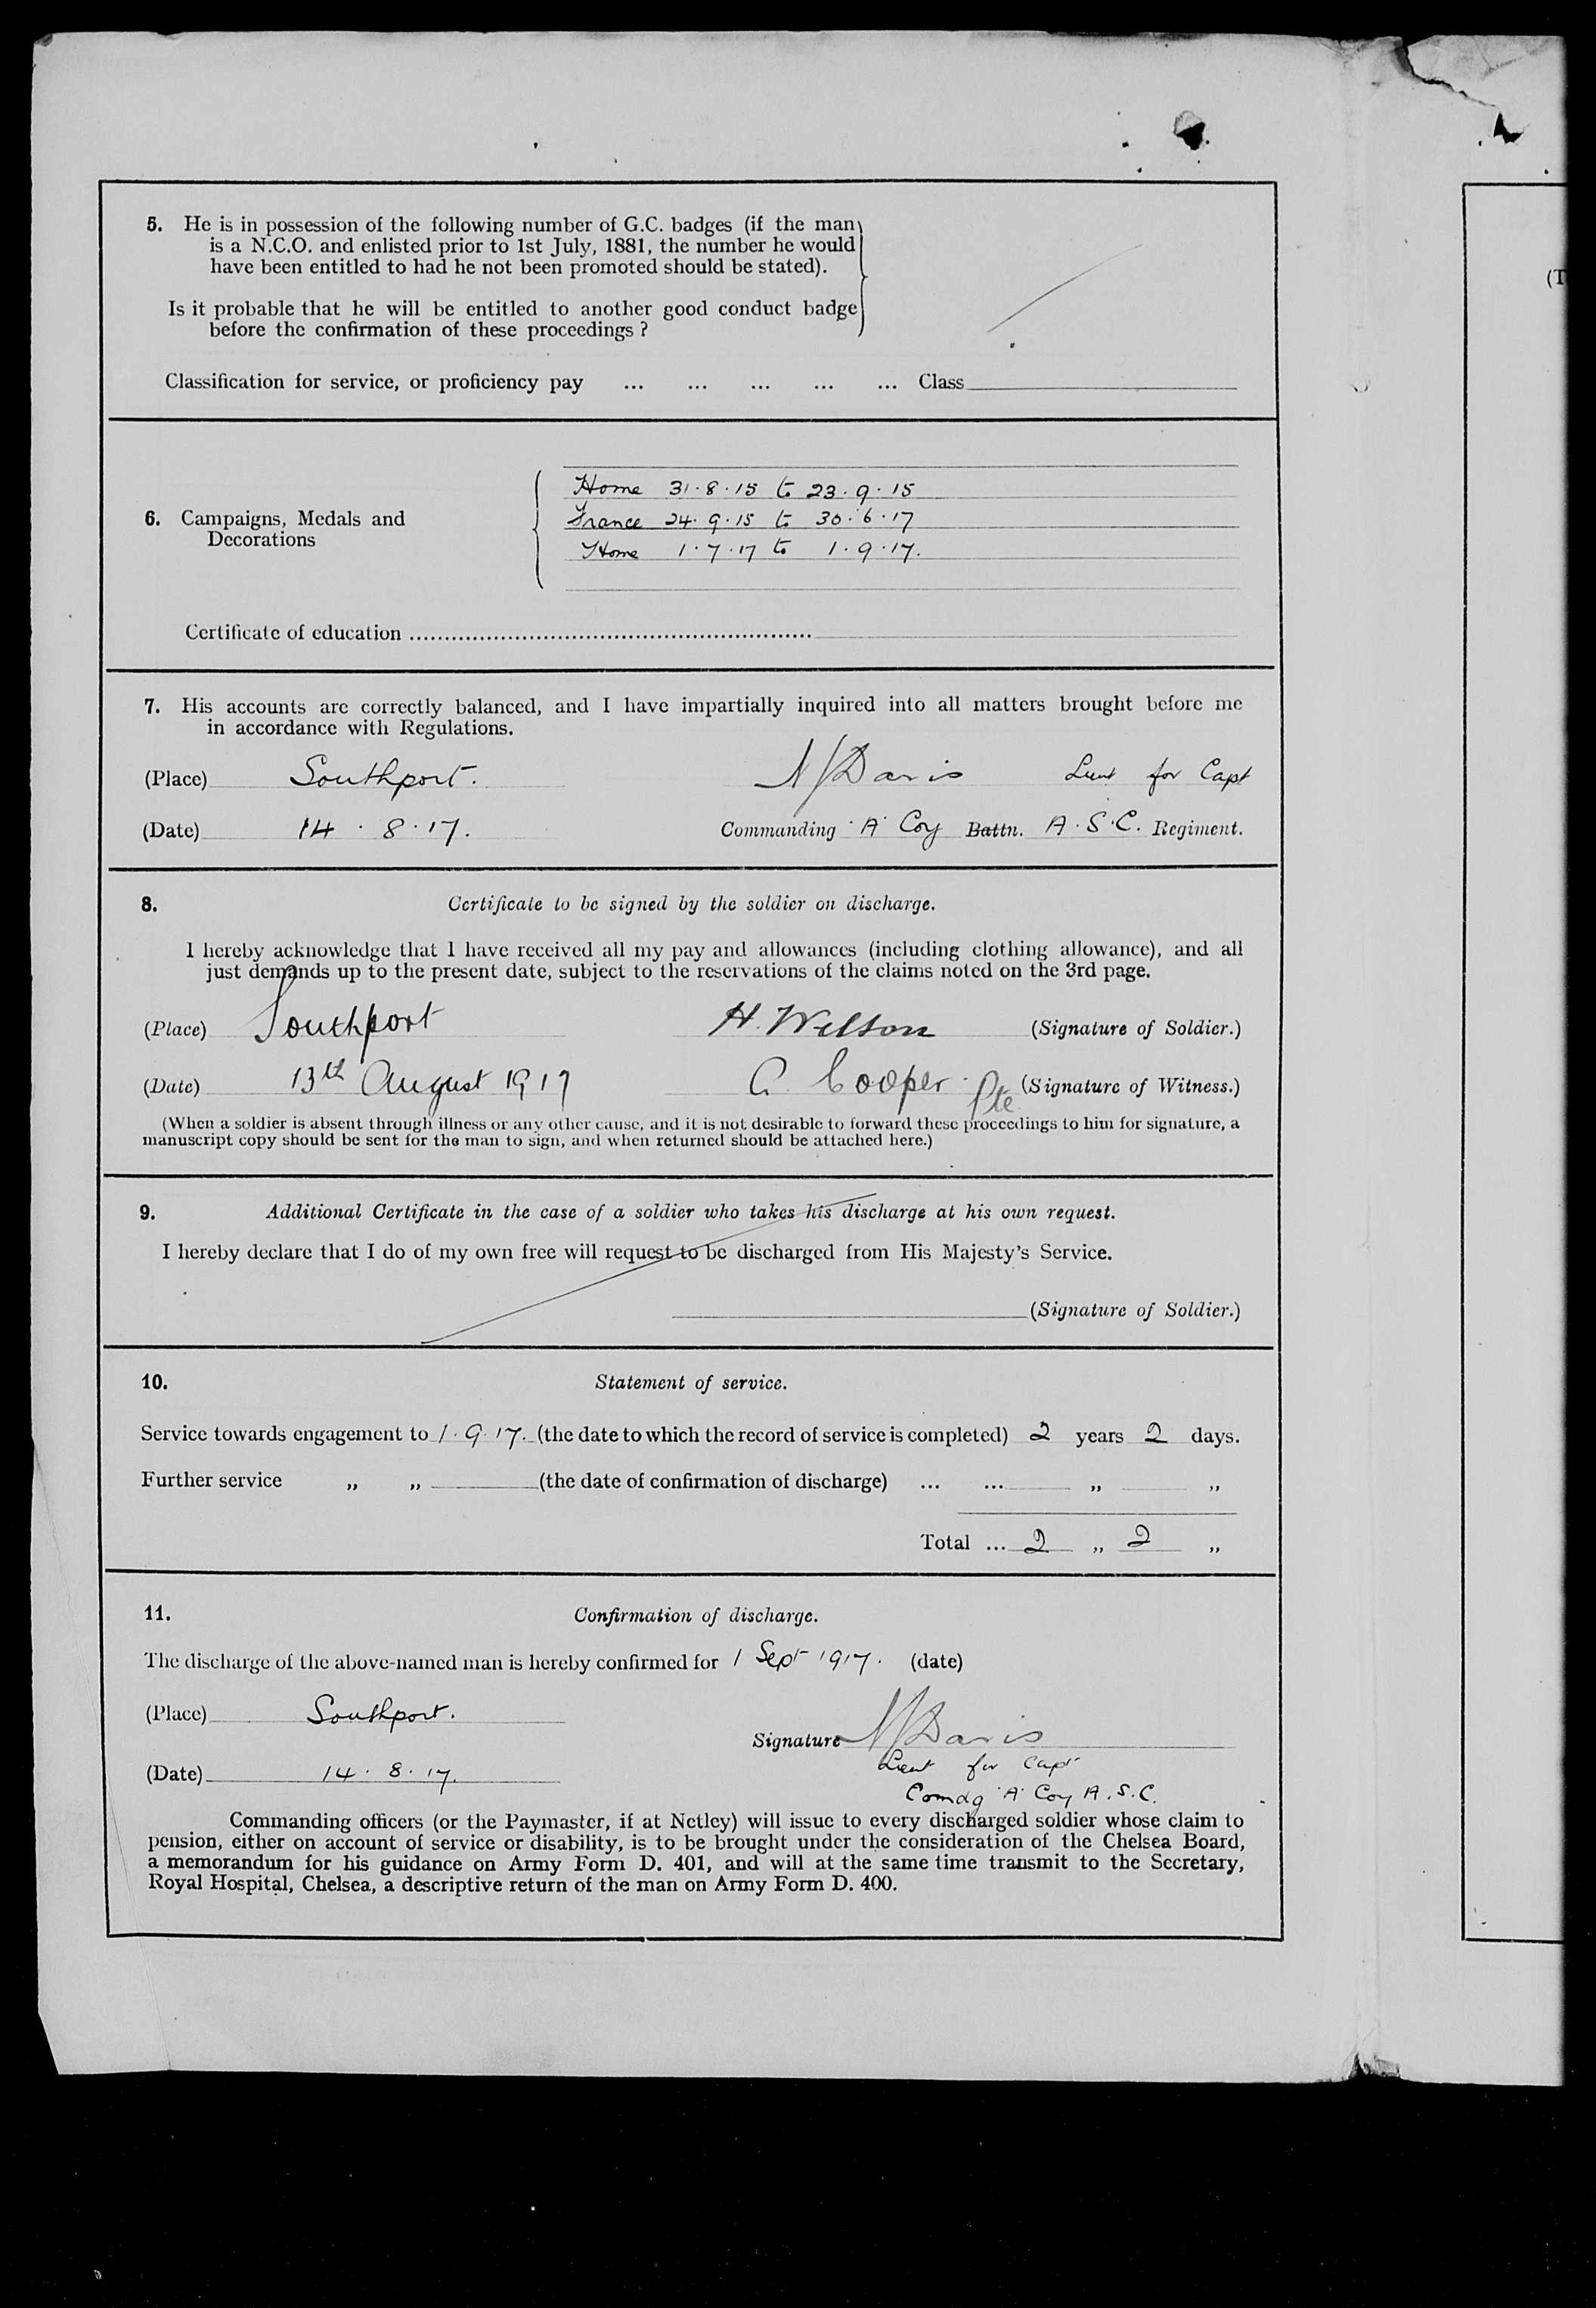 5. He is in possession of the following number of G.C. badges (if the man
is a N.C.O. and enlisted prior to 1st July, 1881, the number he would
have been entitled to had he not been promoted should be stated).
Is it probable that he will be entitled to another good conduct badge
before the confirmation of these proceedings ?
Classification for service, or proficiency pay ... ... ... ... ... Class
Home 31.8.15 to 23.9.15
6. Campaigns, Medals and France 24.9.15 to 30.6.17
Decorations Home 1.7.17 to 1.9.17.
Certificate of education
7. His accounts are correctly balanced, and I have impartially inquired into all matters brought before me
in accordance with Regulations.
(Place) Southport. Davis Lieut for Capt
(Date) 14.8.17. Commanding 'A' Coy Battn. A.S.C. Regiment.
8. Certificate to be signed by the soldier on discharge.
I hereby acknowledge that I have received all my pay and allowances (including clothing allowance), and all
just demands up to the present date, subject to the reservations of the claims noted on the 3rd page.
(Place) Southport H. Wilson (Signature of Soldier.)
(Date) 13th August 1917 Cooper Pte (Signature of Witness.)
(When a soldier is absent through illness or any other cause, and it is not desirable to forward these proceedings to him for signature, a
manuscript copy should be sent for the man to sign, and when returned should be attached here.)
9. Additional Certificate in the case of a soldier who takes his discharge at his own request.
I hereby declare that I do of my own free will request to be discharged from His Majesty's Service.
(Signature of Soldier.)
10. Statement of service.
Service towards engagement to 1.9.17. (the date to which the record of service is completed) 2 years 2 days.
Further service „ „ (the date of confirmation of discharge) ... ... „ „
Total ... 2 „ 2 „
11. Confirmation of discharge.
The discharge of the above-named man is hereby confirmed for 1 Sept 1917. (date)
(Place) Southport.
Signature Davis
(Date) 14.8.17. Lieut for Capt
Comdg 'A' Coy A.S.C.
Commanding officers (or the Paymaster, if at Netley) will issue to every discharged soldier whose claim to
pension, either on account of service or disability, is to be brought under the consideration of the Chelsea Board,
a memorandum for his guidance on Army Form D. 401, and will at the same time transmit to the Secretary,
Royal Hospital, Chelsea, a descriptive return of the man on Army Form D. 400.